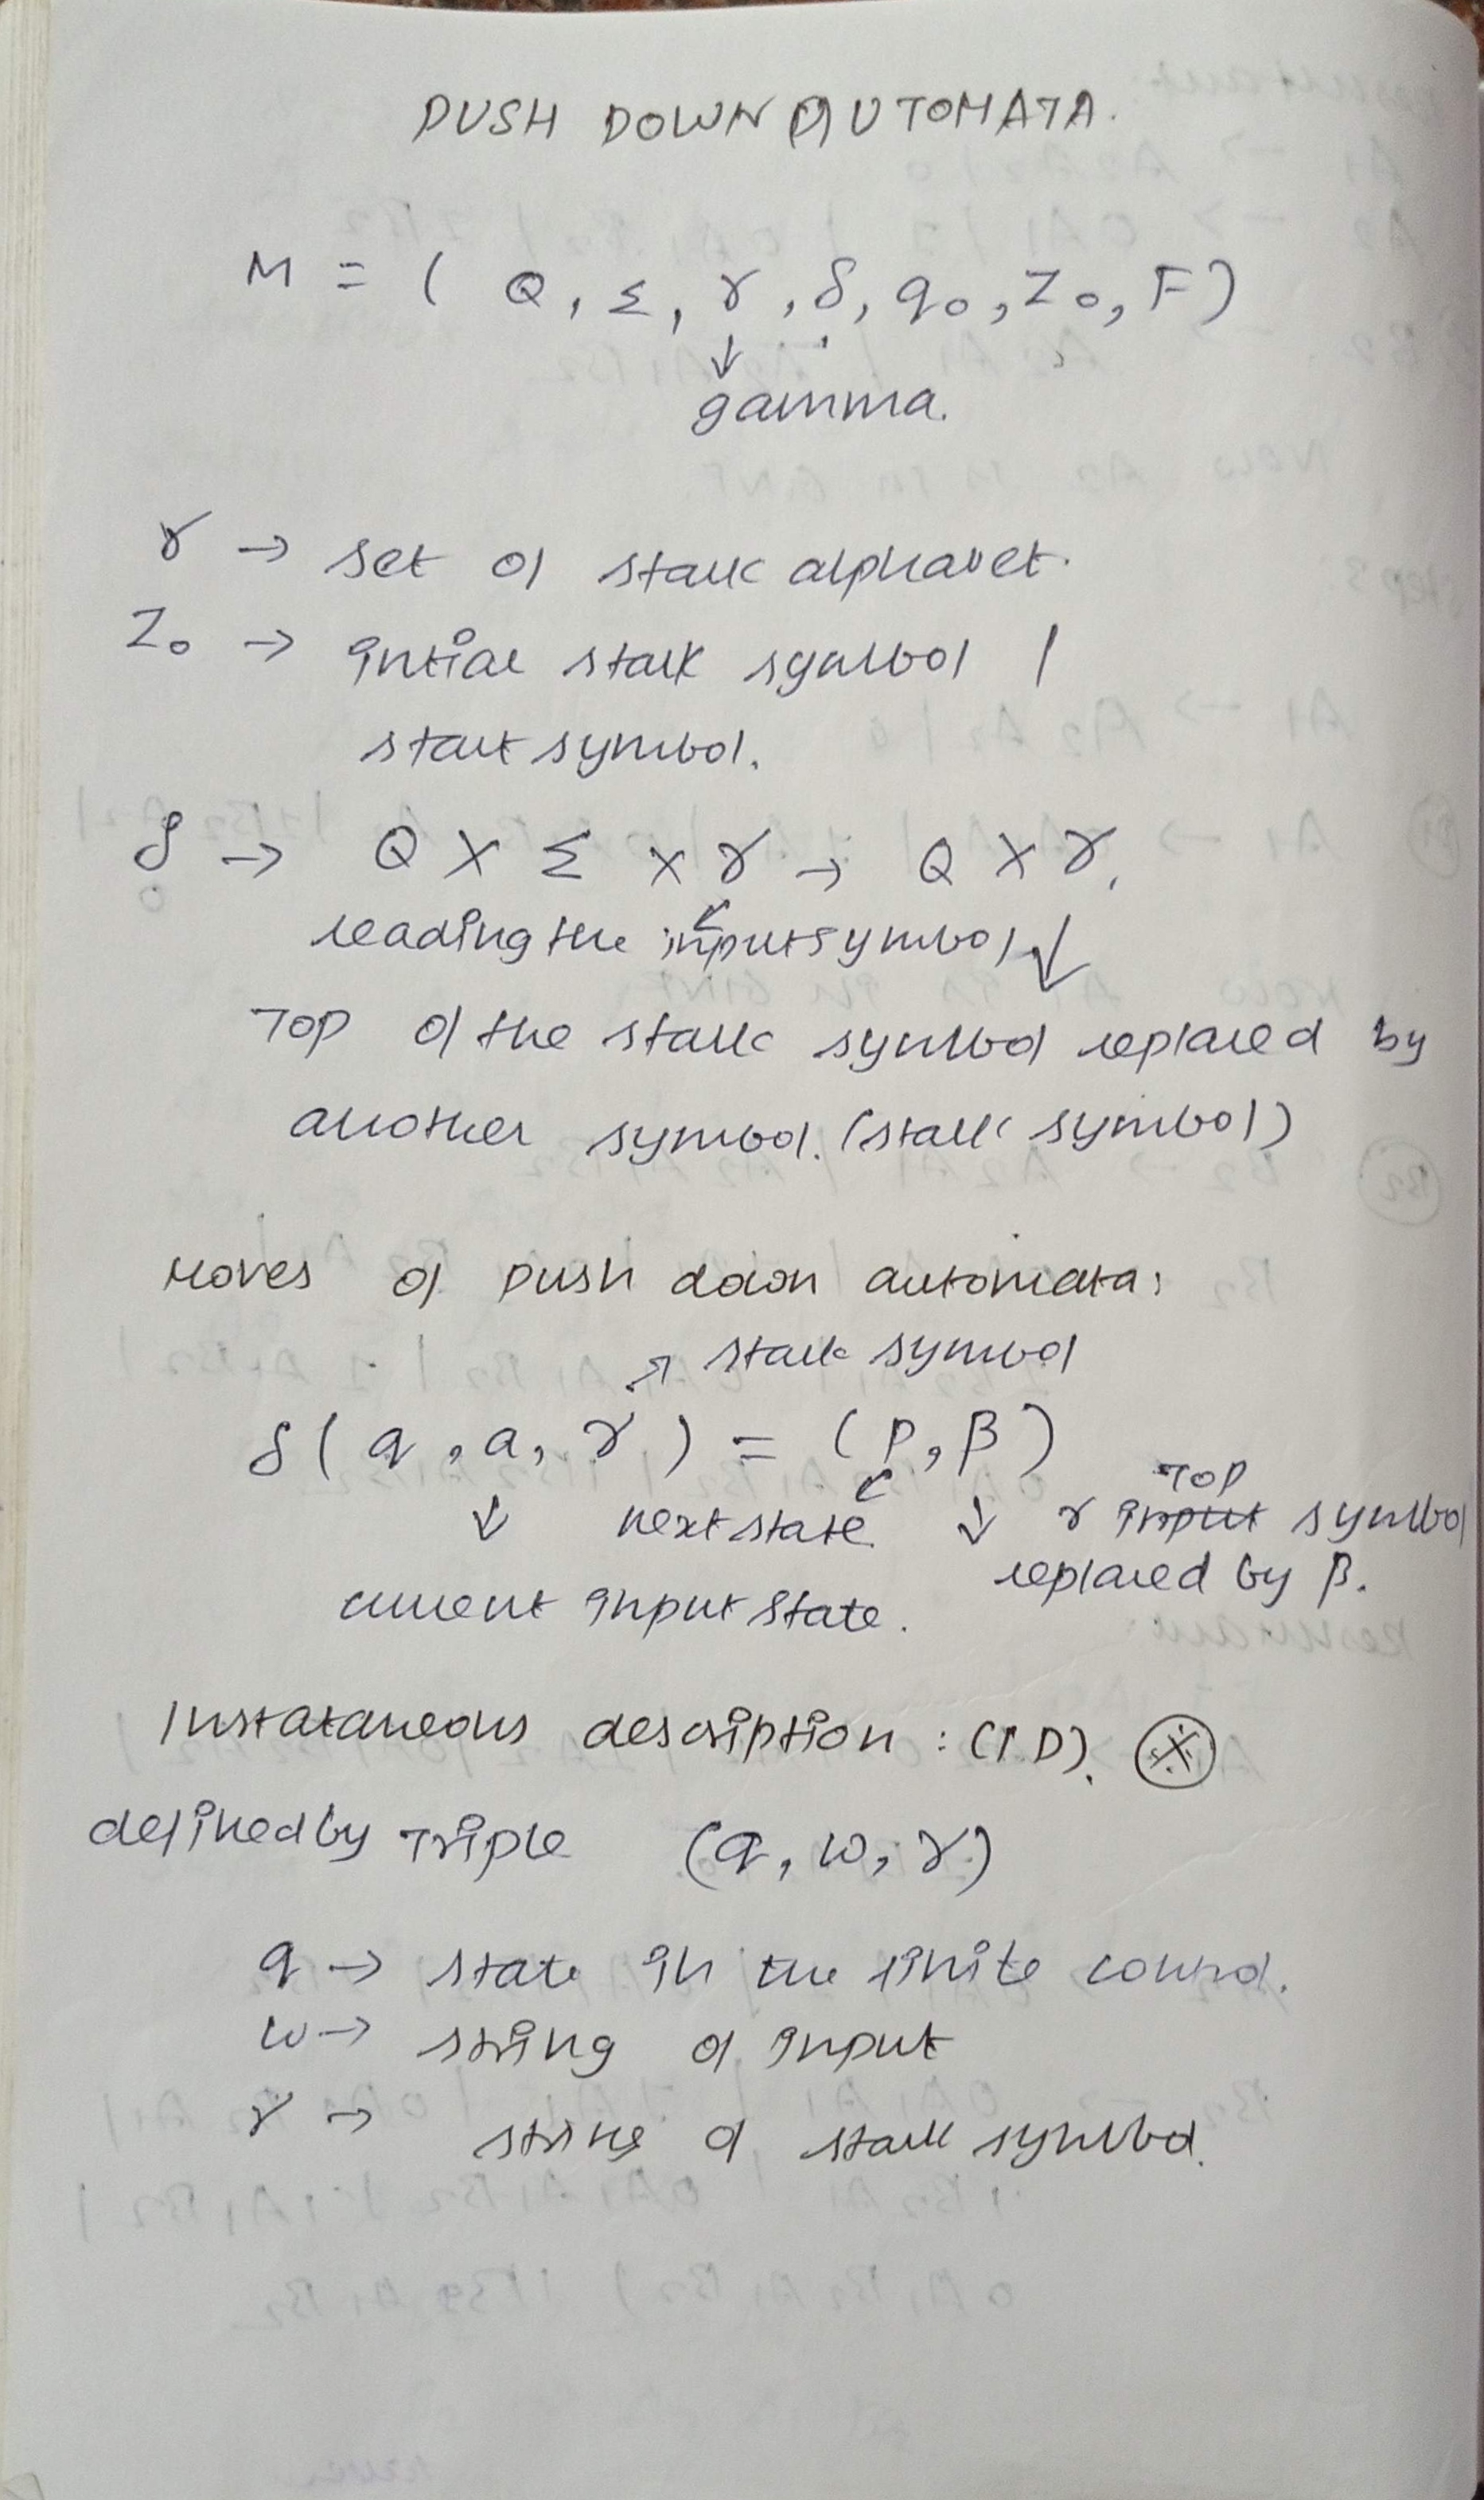 PUSH DOWN AUTOMATA.
M = ( Q, Σ, γ, δ, q0, Z0, F)
↓
gamma.
γ → set of stack alphabet.
Z0 → intial stack symbol /
start symbol.
δ → Q X Σ X γ → Q X γ.
reading the input symbol ↓
TOP of the stack symbol replaced by
another symbol. (stack symbol)
Moves of push down automata:
↗ stack symbol
δ( q, a, γ ) = ( P, β )
↓ next state ↓ γ input TOP symbol
replaced by β.
current input state.
Instataneous description : (ID). ※
defined by Triple (q, w, γ)
q → state in the finite control.
w → string of input
γ → string of stack symbol.